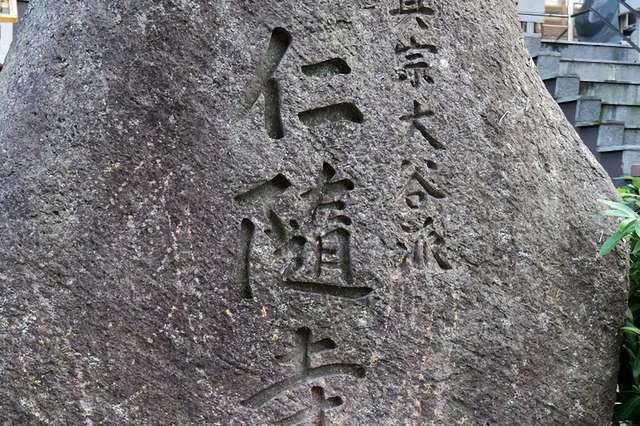 真宗大谷派
仁随寺